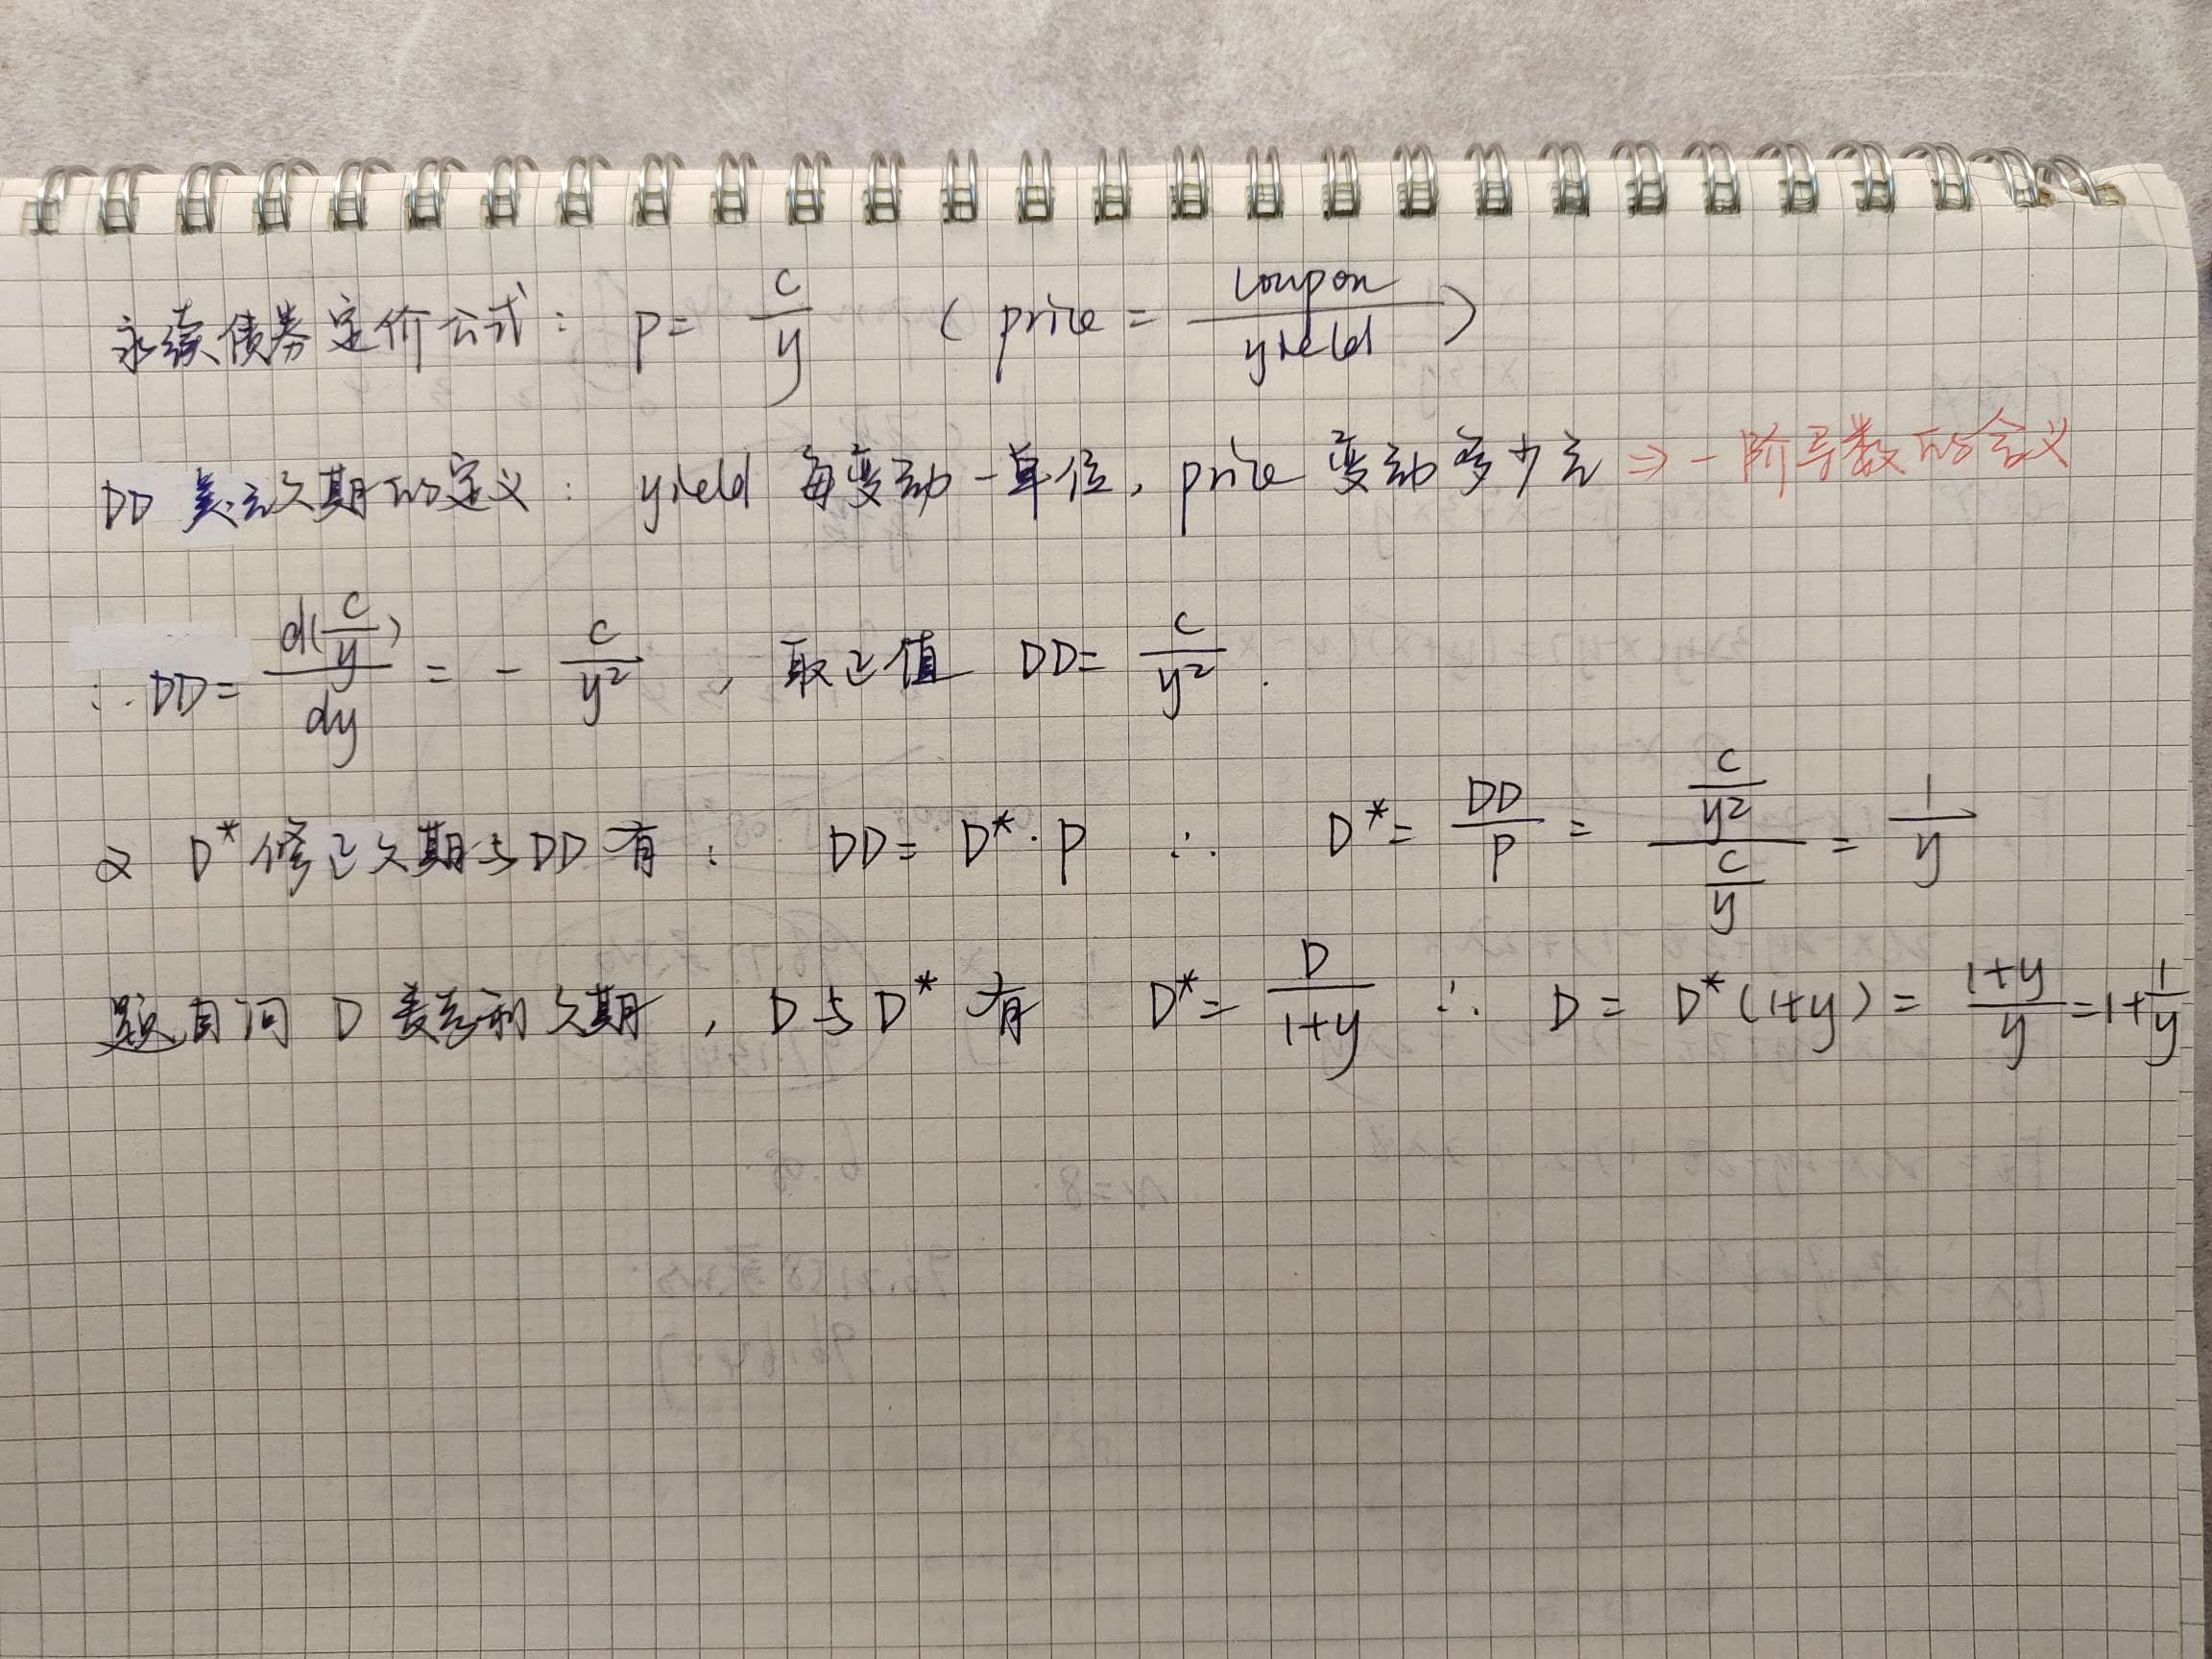 永续债券定价公式： P = c/y （ price = coupon/yield ）
DD 美元久期的定义： yield 每变动一单位，price 变动多少元 ⇒ 一阶导数的含义
∴ DD = d(c/y)/dy = - c/y² ，取正值 DD = c/y² .
又 D* 修正久期与DD有： DD = D*·P ∴ D* = DD/P = (c/y²)/(c/y) = 1/y
题目问 D 麦考利久期，D与D* 有 D* = D/(1+y) ∴ D = D*(1+y) = (1+y)/y = 1+1/y